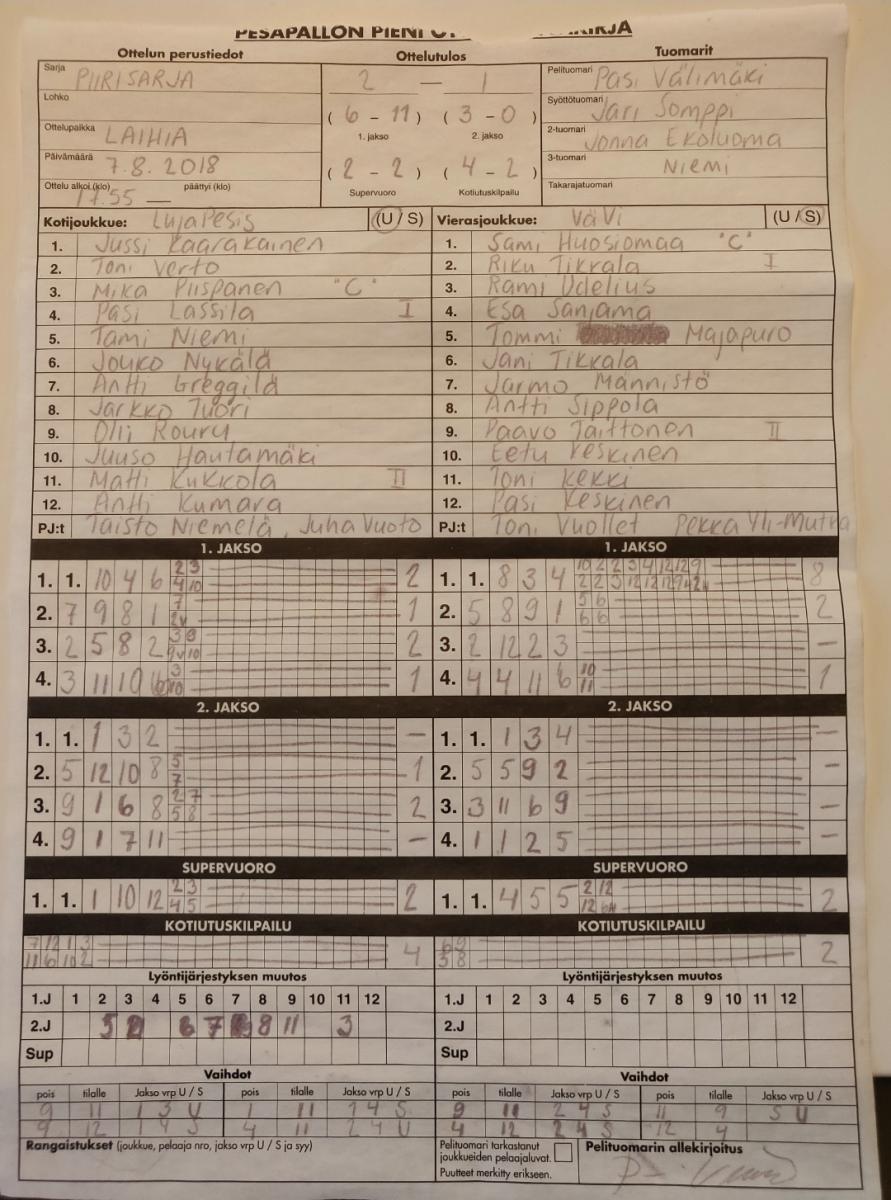 PESÄPALLON PIENI
Ottelun perustiedot Ottelutulos Tuomarit
Sarja PIIRISARJA
Lohko
Ottelupaikka LAIHIA
Päivämäärä 7.8.2018
Ottelu alkoi (klo) 17.55 — päättyi (klo)
2 — 1
( 6 - 11 ) ( 3 - 0 )
1. jakso 2. jakso
( 2 - 2 ) ( 4 - 2 )
Supervuoro Kotiutuskilpailu
Pelituomari Pasi Välimäki
Syöttötuomari Jari Somppi
2-tuomari Jonna Ekoluoma
3-tuomari Niemi
Takarajatuomari
Kotijoukkue: LujaPesis (U / S)
1. Jussi Kaarakainen
2. Toni Verto
3. Mika Piispanen "C"
4. Pasi Lassila I
5. Tami Niemi
6. Jouko Nykälä
7. Antti Greggilä
8. Jarkko Tuori
9. Olli Koury
10. Juuso Hautamäki
11. Matti Kukkola II
12. Antti Kumara
PJ:t Taisto Niemelä, Juha Vuoto
Vierasjoukkue: ViVi (U / S)
1. Sami Huosiomaa "C"
2. Riku Tikkala I
3. Rami Udelius
4. Esa Sanjama
5. Tommi Majapuro
6. Jani Tikkala
7. Jarmo Männistö
8. Antti Sippola
9. Paavo Taittonen II
10. Eetu Keskinen
11. Toni Kekki
12. Pasi Keskinen
PJ:t Toni Vuollet Pekka Yli-Mutka
1. JAKSO
1. 1. 10 4 6 2 3 2
4 10
2. 7 9 8 1 7 1
3. 2 5 8 2 2
4. 3 11 10 3 1
10
2. JAKSO
1. 1. 1 3 2 —
2. 5 12 10 8 5 1
7
3. 9 1 6 8 2 7 2
5 8
4. 9 1 7 11 —
SUPERVUORO
1. 1. 1 10 12 2 3 2
4 5
KOTIUTUSKILPAILU
7 12 1 3 4
11 6 10 2
1. JAKSO
1. 1. 8 3 4 10 2 2 3 4 12 12 9 8
2. 5 8 9 1 5 6 2
6 6
3. 2 12 2 3 —
4. 4 4 11 6 10 1
11
2. JAKSO
1. 1. 1 3 4 —
2. 5 5 9 2 —
3. 3 11 6 9 —
4. 1 1 2 5 —
SUPERVUORO
1. 1. 4 5 5 2 12 2
12
KOTIUTUSKILPAILU
6 9 2
3 8
Lyöntijärjestyksen muutos
1.J 1 2 3 4 5 6 7 8 9 10 11 12
2.J 5 6 7 8 11 3
Sup
Lyöntijärjestyksen muutos
1.J 1 2 3 4 5 6 7 8 9 10 11 12
2.J
Sup
Vaihdot
pois tilalle Jakso vrp U / S pois tilalle Jakso vrp U / S
9 11 1 3 U 1 11 2 4 S
9 12 1 4 S 4 11 2 4 U
Vaihdot
pois tilalle Jakso vrp U / S pois tilalle Jakso vrp U / S
9 11 2 4 S 11 9 S U
4 12 2 4 S 12 4
Rangaistukset (joukkue, pelaaja nro, jakso vrp U / S ja syy)
Pelituomari tarkastanut
joukkueiden pelaajaluvat.
Puutteet merkitty erikseen.
Pelituomarin allekirjoitus